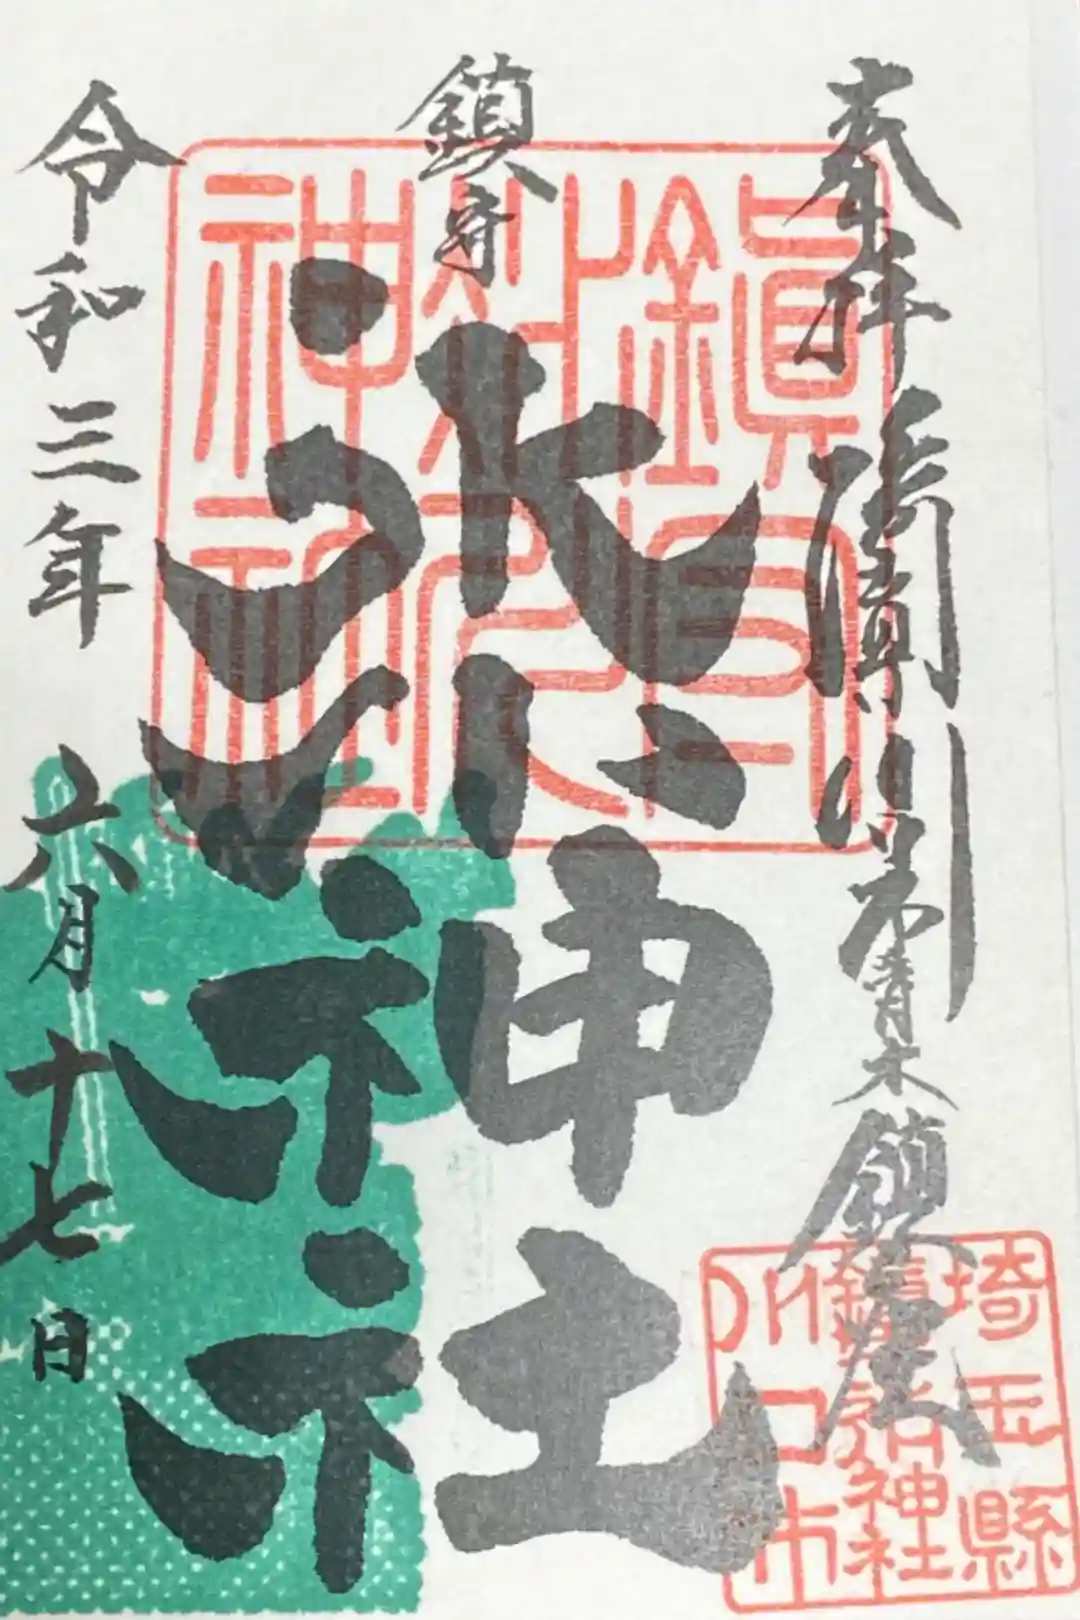 奉拝
川口市青木鎮座
鎮守
氷川神社
令和三年
六月十七日
鎮守
氷川
神社
埼玉縣
鎮守氷川神社
川口市